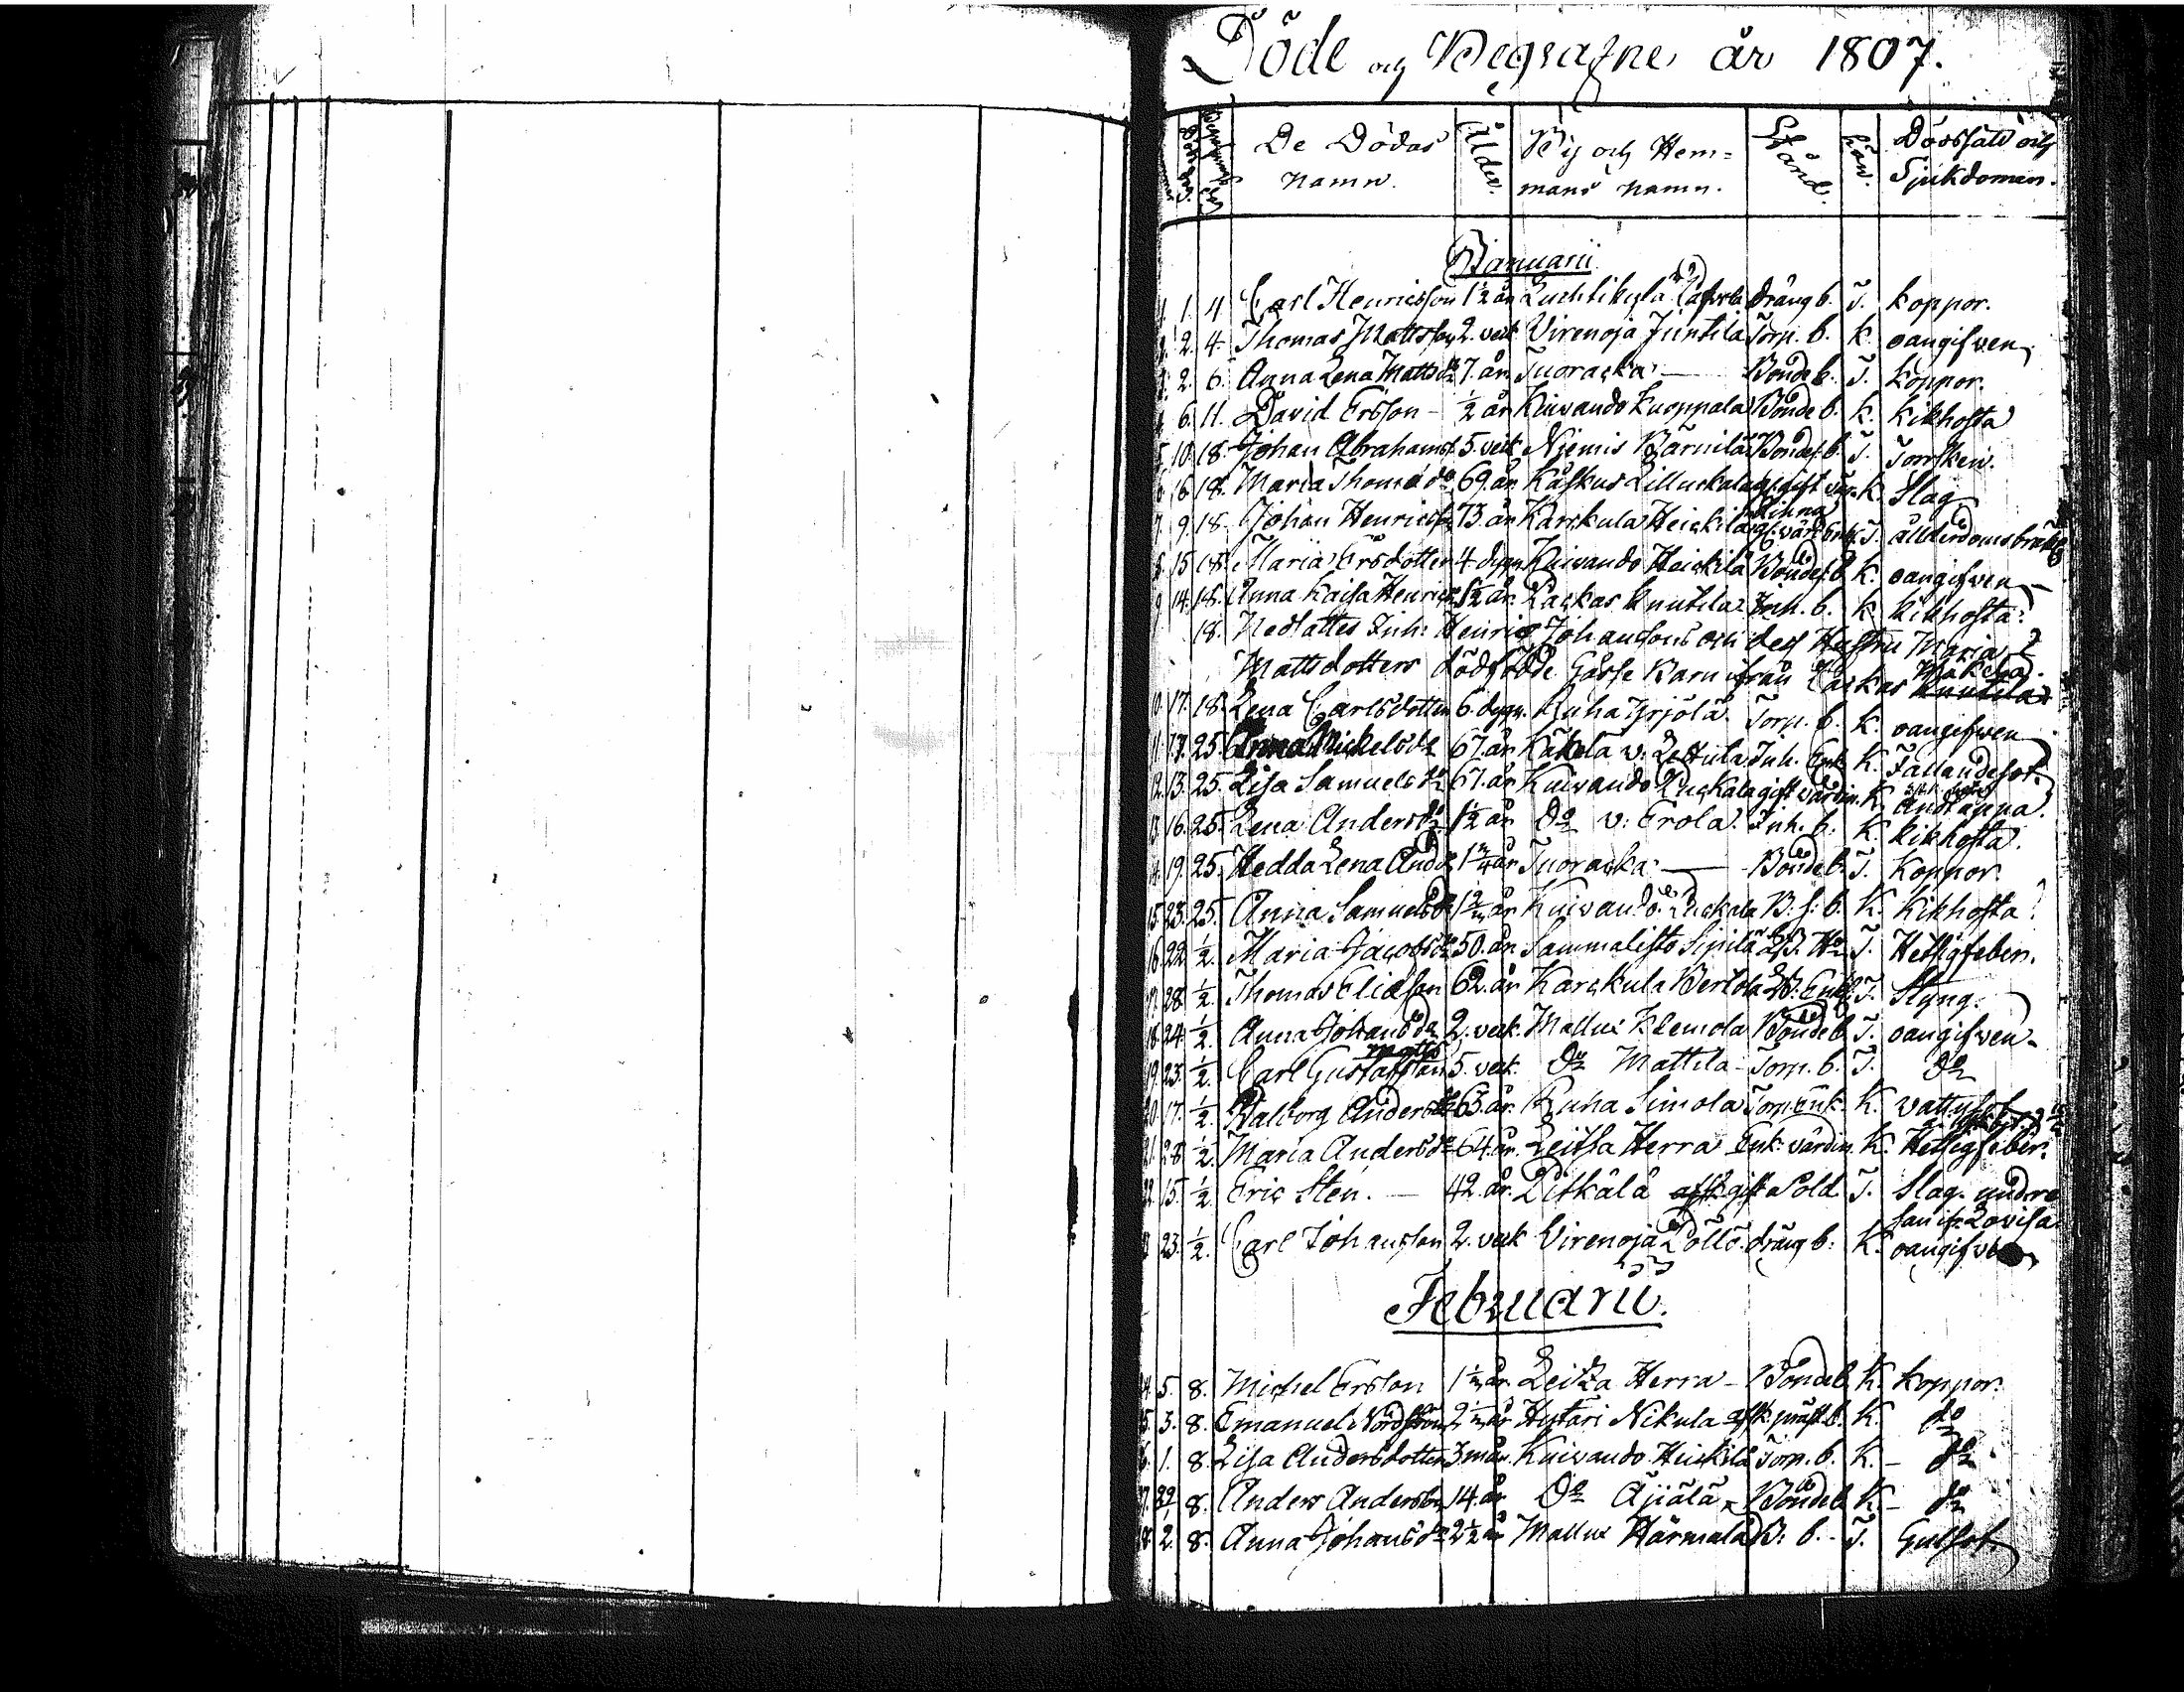 Döde och Begrafne år 1807.
De Dödas Namn. Ålder. By och Hemmans namn. Stånd. Kön. Dödssätt och Sjukdomen.
Januarii
1. 1. 4 Carl Henricsson 1½ år Luchtikyla drängb. T. koppor.
2. 2. 4. Thomas Mattsson 2. veck Virenoja Juntila Torp. b. K. oangifven
3. 2. 6. Anna Lena Mattsdr 7. år Tuoracka — Bondeb. T. koppor.
4. 6. 11. David Ersson - ½ år Kuivando Kuoppala Bondeb. K. Kikhosta
5. 10. 18. Johan Abrahamss 5. veck Niemis Bärnilä Bondes. b. T. Torrsken.
6. 16. 18. Maria Thomædr 69. år Kåskus Lilluckala K. Slag
7. 9. 18. Johan Henricsson 73. år Karckula Heickilä T. ålderdomsbräcka
8. 15. 18. Maria Ersdotter 4 dygn Kuivando Heickilä Bondes. b. K. oangifven
9. 14. 18. Anna Kaisa Henrics 1½ år. Lackas Knutila Inh. b. K kikhosta
18. Nedsattes Inh: Henric Johanssons och dess Hustru Maria
Mattsdotters dödfödde Gosse Barn ifrån Lackas Knutila Mäkelä.
10. 17. 18. Lena Carlsdotter 6. dygn. Ruha Yrjölä. Torp. b. K. oangifven
11. 17. 25. Anna Mickelsdr 67. år Käkelä v. Lettula Inh. Enk K. Fallandesot
12. 13. 25. Lisa Samuelsdr 67. år Kuivando Luckala gift värdin. K. Andtäppa.
13. 16. 25. Lena Andersdr 1½ år Do v: Erola. Inh. b. K. kikhosta.
14. 19. 25. Hedda Lena Andr 1¾ år Tuoracka — Bondeb. T. Koppor.
15. 23. 25. Anna Samuelsdr 1½ år Kuivando Luckala B. s. b. K. Kikhosta
16. 22. ½. Maria Jacobsdr 50. år. Sammalisto Sipilä T. Hetsigfeber.
17. 28. ½. Thomas Eliasson 62. år Karckula Bertola T. Styng.
18. 24. ½. Anna Johansdr 2. veck. Mallus Klemola Bondeb T. oangifven.
19. 23. ½. Carl Gustafsson Matts 5. veck. Do Mattila - Torp. b. T. Do
20. 17. ½. Walborg Andersdr 63. år. Ruha Simola Torp. enk. K. vattusot
21. 28. ½. Maria Andersdr 64. år. Leitsa Herra Enk. värdin K. Hetsigfeber.
22. 15. ½. Eric Sten. — 42. år. Pitkälä afsk gift Sold T. Slag. under
resan if. Lovisa
23. 23. ½. Carl Johansson 2. veck Virenoja Pöllö. dräng b: K. oangifven
Februarii.
24. 5. 8. Michel Ersson 1½ år. Leitza Herra - Bondeb K. koppor.
25. 3. 8. Emanuel Nordström 2½ år Hytäri Nikula K. do
26. 1. 8. Lisa Andersdotter 3 mån. Kuivando Heickilä Torp. b. K. - do
27. 8. Anders Andersson 14. år Do Äjälä - Bondeb K. - do
28. 2. 8. Anna Johansdr 2½ år Mallus Härmälä B: b. - T. Gulsot